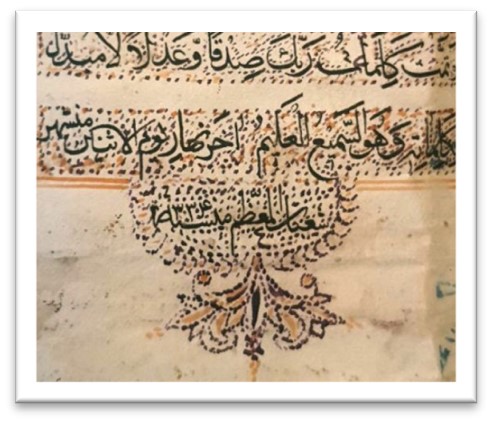 تمت كلمات ربك صدقا وعدلا لا مبدل
لكلماته وهو السميع العليم آخر نهار يوم الاثنين من شهر
شعبان المعظم من سنة